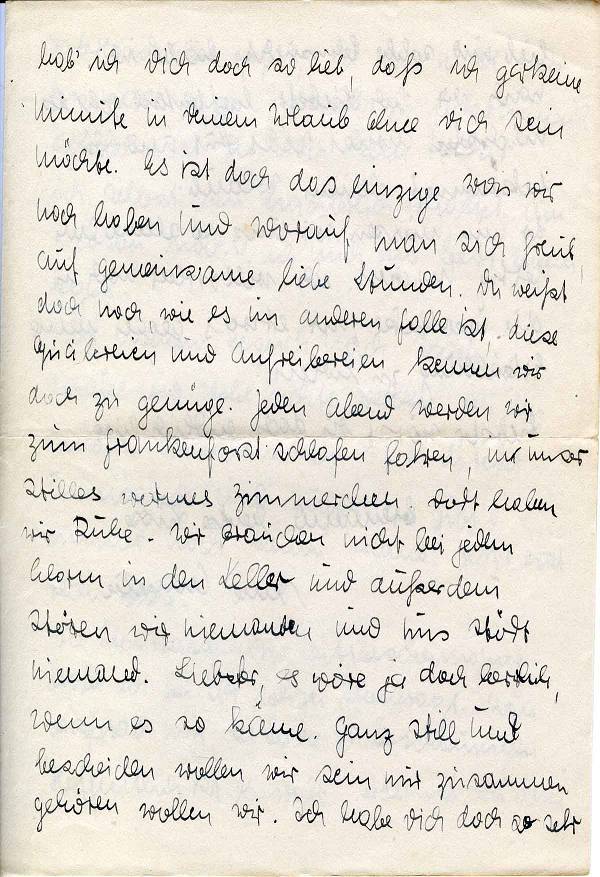 hab' ich dich doch so lieb, daß ich garkeine
minute in deinem Urlaub ohne dich sein
möchte. Es ist doch das einzige was wir
noch haben und worauf man sich freut,
auf gemeinsame liebe Stunden. Du weißt
doch noch, wie es im anderen falle ist. diese
und Aufreibereien kennen wir
doch zu genüge. jeden Abend werden wir
zum frankenforst schlafen fahren, in unser
stilles warmes zimmerchen. dort haben
wir Ruhe. Wir brauchen nicht bei jedem
Alarm in den Keller und außerdem
stören wir niemanden und uns stört
niemand. Liebster, es wäre ja doch herrlich,
wenn es so käme. ganz still und
bescheiden wollen wir sein nur zusammen
gehören wollen wir. Ich habe dich doch so sehr